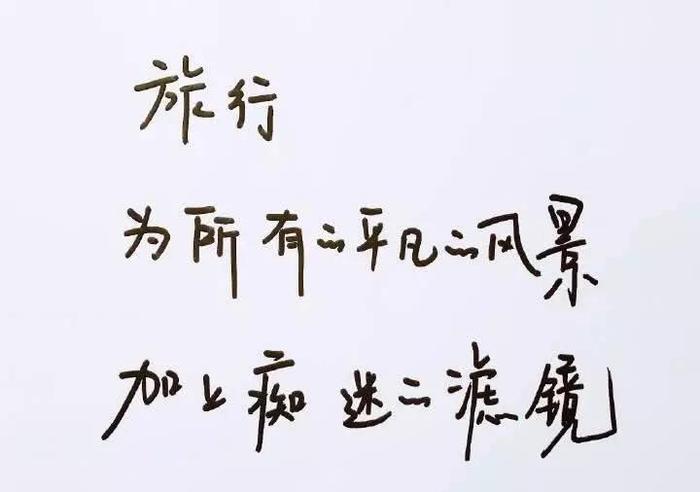 旅行
为所有的平凡的风景
加上痴迷的滤镜